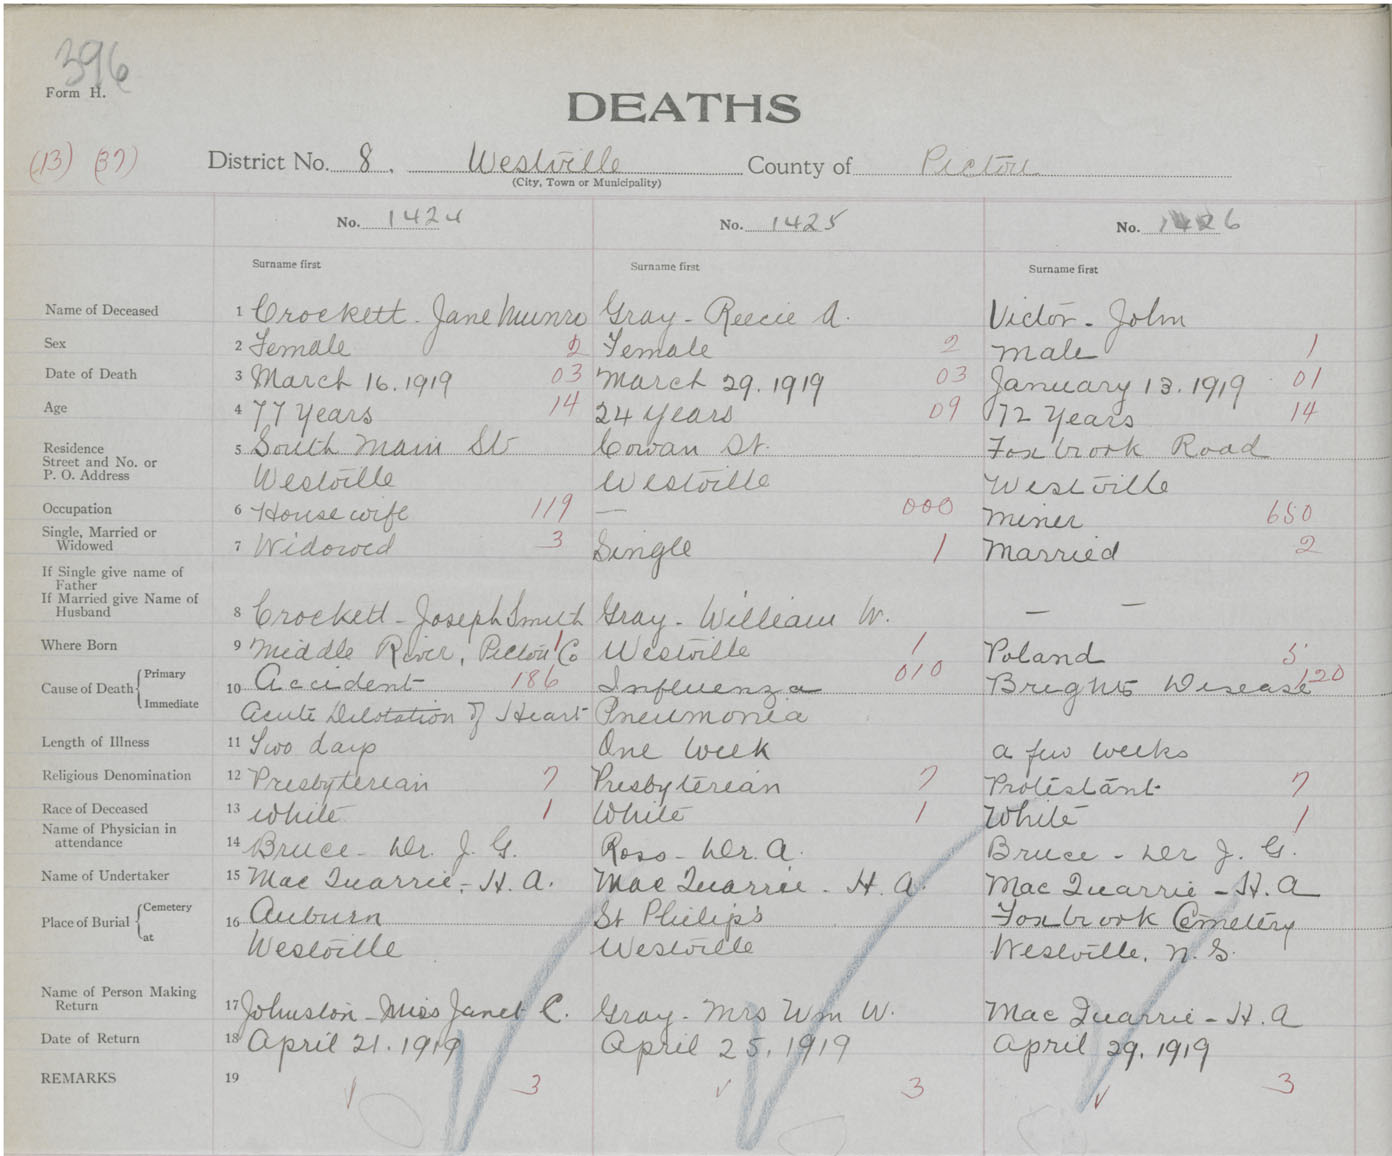 396
Form H.
DEATHS
(13) (37) District No. 8. Westville County of Pictou
(City, Town or Municipality)
No. 1424 No. 1425 No. 1426
Surname first Surname first Surname first
Name of Deceased 1 Crockett - Jane Munro Gray - Reecie A. Victor - John
Sex 2 Female 2 Female 2 Male 1
Date of Death 3 March 16. 1919 03 March 29. 1919 03 January 13. 1919 01
Age 4 77 Years 14 24 Years 09 72 Years 14
Residence
Street and No. or 5 South Main St Cowan St. Foxbrook Road
P. O. Address Westville Westville Westville
Occupation 6 Housewife 119 — 000 Miner 650
Single, Married or
Widowed 7 Widowed 3 Single 1 Married 2
If Single give name of
Father
If Married give Name of
Husband 8 Crockett - Joseph Smith Gray - William W. — —
Where Born 9 Middle River, Pictou Co 1 Westville 1 Poland 5
Cause of Death { Primary 10 Accident 186 Influenza 010 Brights Disease 120
Immediate Acute Dilotation of Heart Pneumonia
Length of Illness 11 Two days One Week a few weeks
Religious Denomination 12 Presbyterian 7 Presbyterian 7 Protestant 7
Race of Deceased 13 White 1 White 1 White 1
Name of Physician in
attendance 14 Bruce - Dr. J. G. Ross - Dr. A. Bruce - Dr J. G.
Name of Undertaker 15 Mac Quarrie - H. A. Mac Quarrie - H. A. Mac Quarrie - H. A
Place of Burial { Cemetery 16 Auburn St Philip's Foxbrook Cemetery
at Westville Westville Westville, N. S.
Name of Person Making
Return 17 Johnston - Miss Janet C. Gray - Mrs Wm W. Mac Quarrie - H. A
Date of Return 18 April 21. 1919 April 25, 1919 April 29, 1919
REMARKS 19 3 3 3